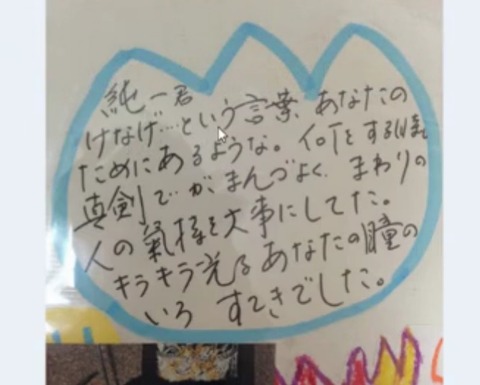 純一君
けなげ…という言葉 あなたの
ためにあるような。何をする時も
真剣で がまんづよく まわりの
人の気持を大事にしてた。
キラキラ光るあなたの瞳の
いろ すてきでした。